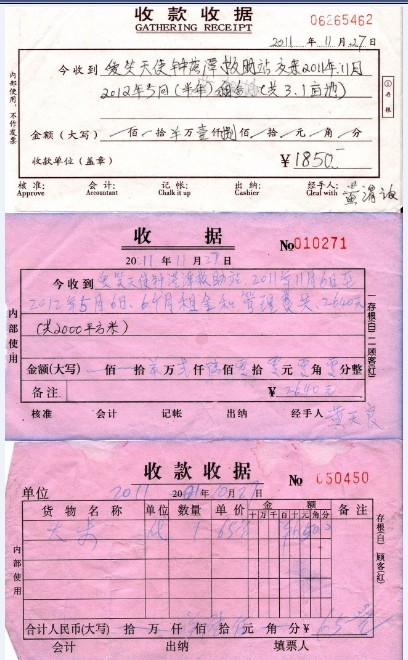 收款收据
GATHERING RECEIPT
06265462
2011年11月27日
今收到 爱笑天使钟落潭救助站交来2011年11月
2012年5月(半年)租金(共3.1亩地)
金额(大写) 佰 拾 万壹仟捌佰 拾 元 角 分
收款单位(盖章) ¥1850.—
内部使用,不作发票
①存根
核准: 会计: 记帐: 出纳: 经手人:
Approve Accountant Chalk it up Cashier Cleal with
收 据
No 010271
2011年11月27日
今收到 爱笑天使钟落潭救助站, 2011年11月6日至
2012年5月6日, 6个月租金和管理费共2640元
(共2000平方米)
金额(大写) 佰 拾 万 仟 佰 拾 元 角 分整
备注 ¥2640元
内部使用
一存根(白) 二顾客(红)
核准 会计 记帐 出纳 经手人
收款收据
No 050450
单位 2011
20 年 月 27日
货物名称 单位 数量 单价 金额 备注
十万千百十元角分
1 65
合计人民币(大写) 拾 万 仟 佰 拾 元 角 分 ¥ 65
内部使用
存根(白) 顾客(红)
会计 出纳 填票人